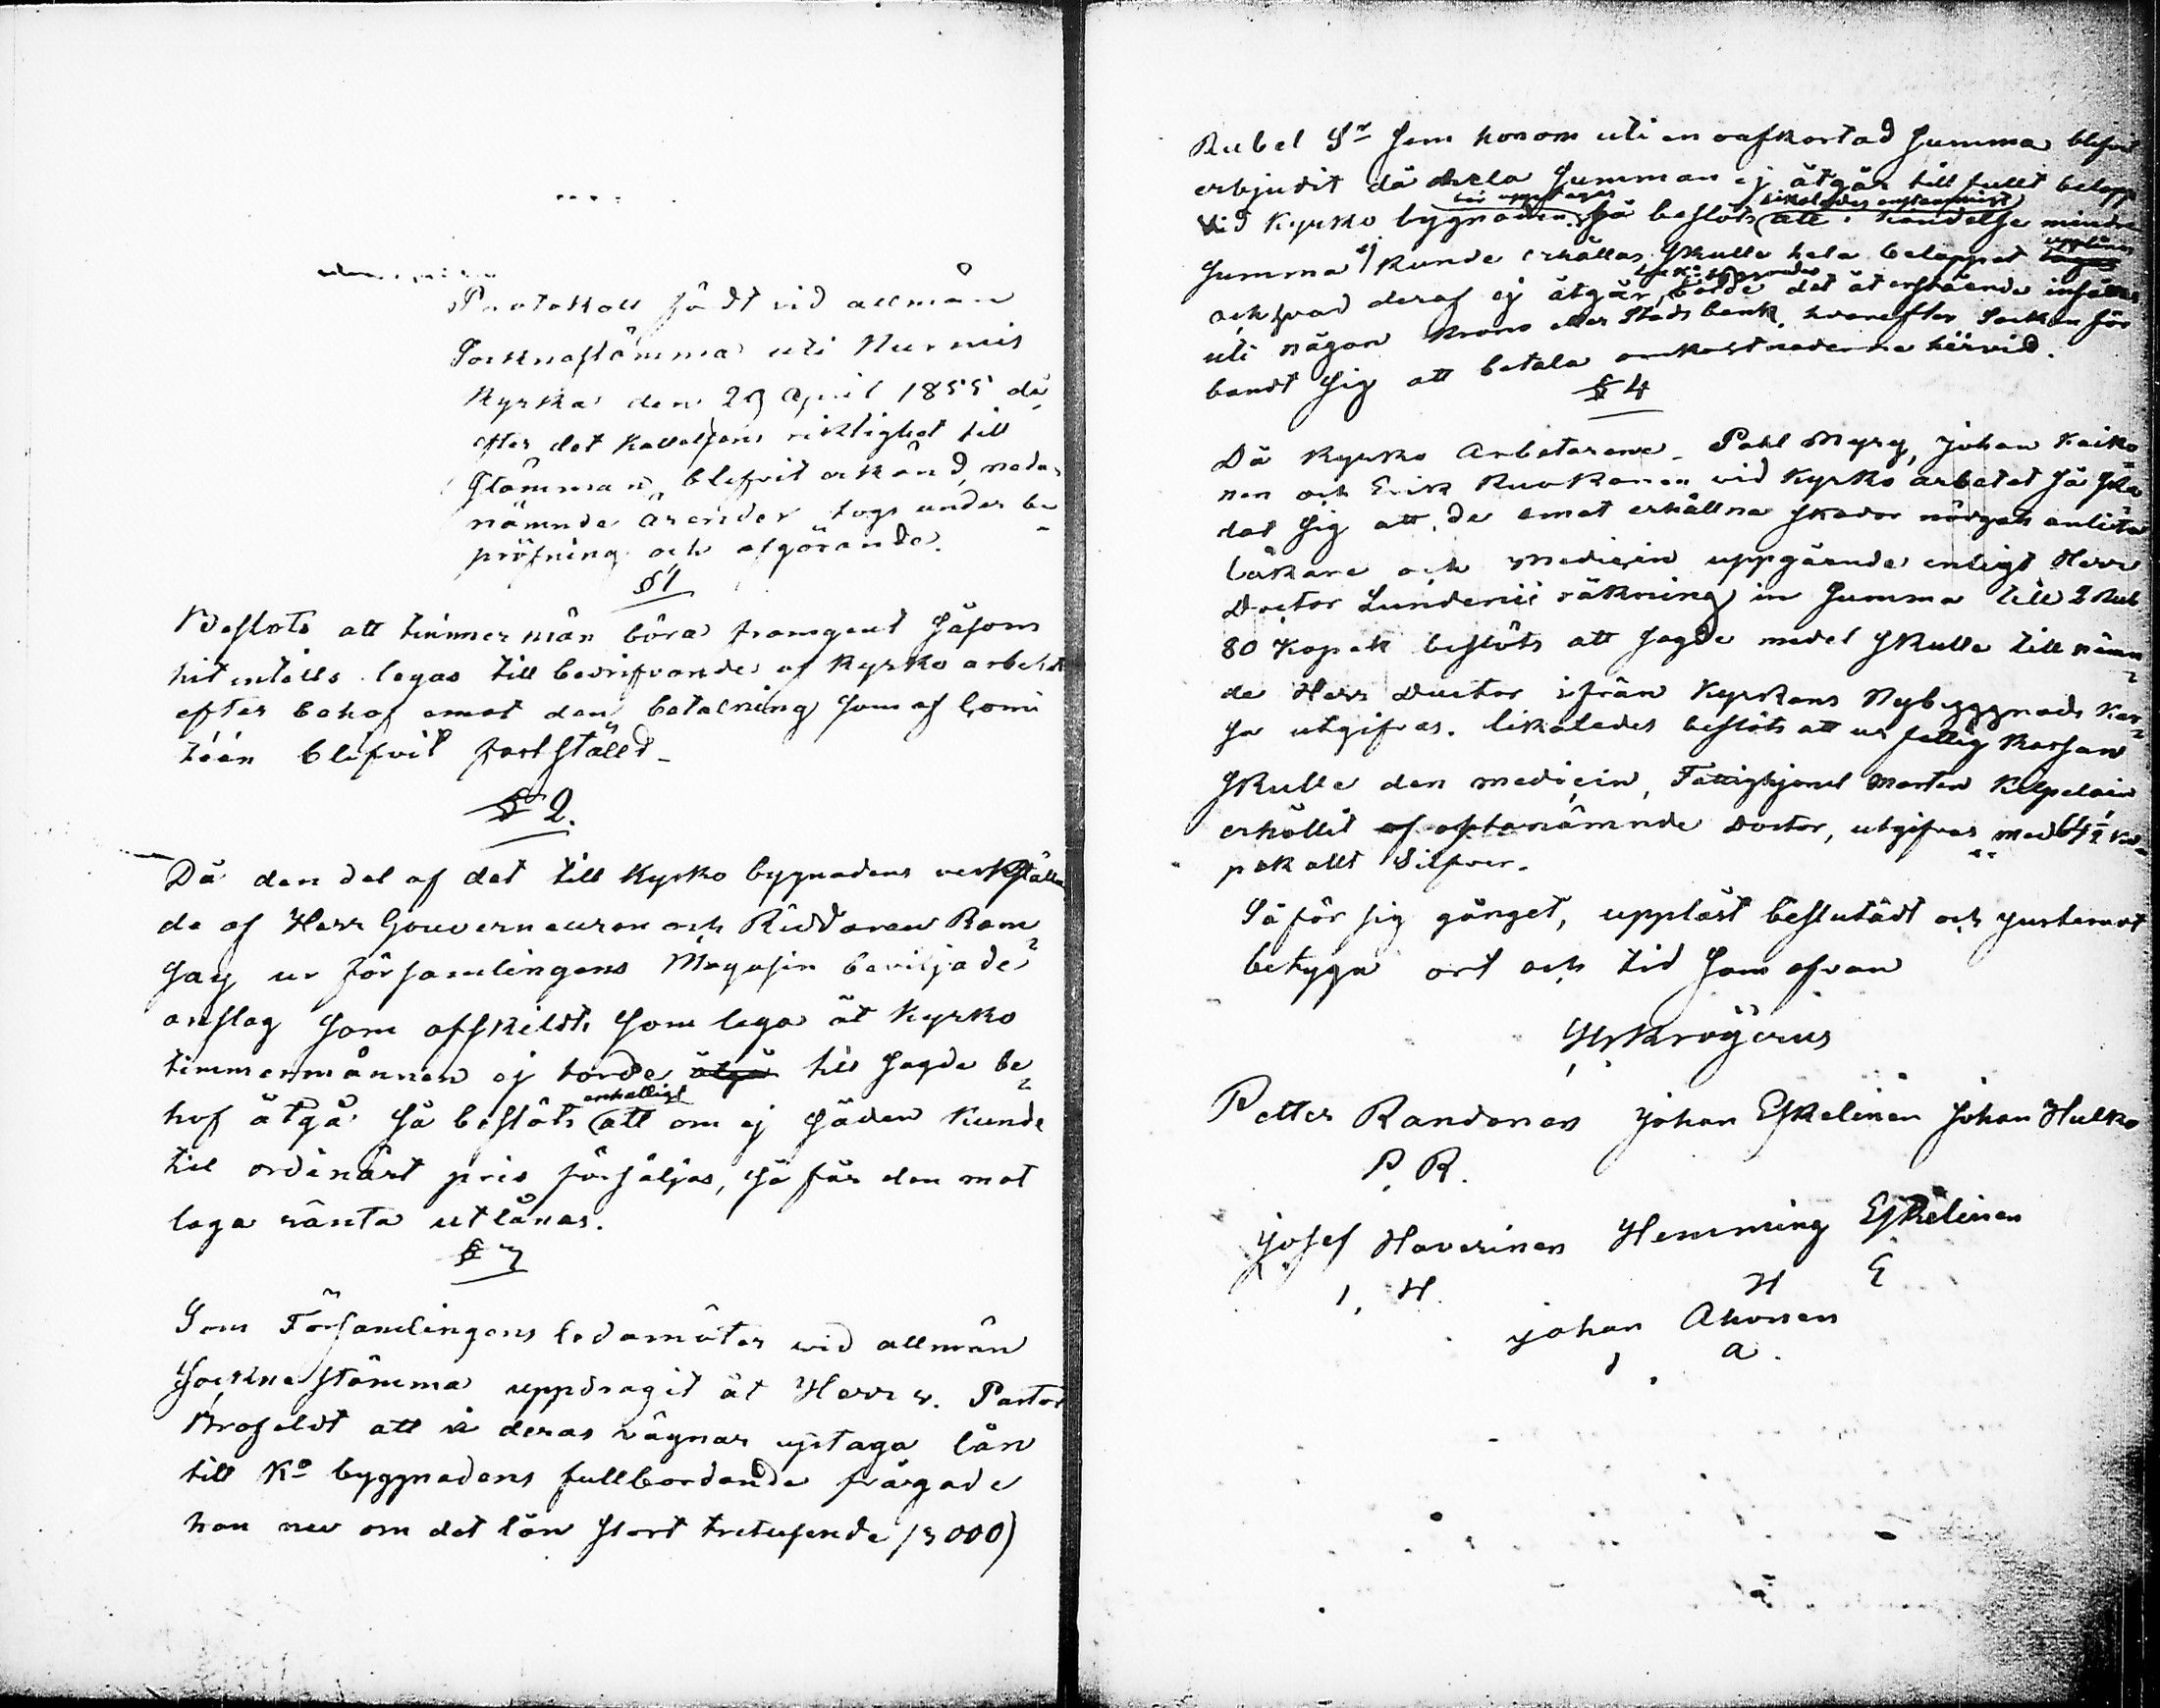 Protokoll fördt vid allmän
Socknestämma uti Nurmis
Kyrka den 29 April 1855 då
efter det kallelsens riktighet till
Stämman blefvit erkänd, neda-
nämnde ärender togs under be-
pröfning och afgörande.
§ 1
Beslöts att timmermän böra framgent såsom
hitintills legas till bedrifvande af Kyrko arbetet
efter behof emot den betalning som af Comi
téen blifvit fastställd.
§ 2.
Då den del af det till Kyrko bygnadens verkställan
de af Herr Gouverneuren och Riddaren Ram-
say ur Församlingens Magasin beviljade
anslag som afskildts som lega åt Kyrko
timmermännen ej torde åtgå till sagde be-
hof åtgå så beslöts enhälligt att om ej säden kunde
till ordinärt pris försäljas, så får den mot
laga ränta utlånas.
§ 3
Som Församlingens ledamöter vid allmän
Sockne stämma uppdragit åt Herr v. Pastor
Brofeldt att å deras vägnar uptaga lån
till Ko byggnadens fullbordande frågade
han nu om det lån stort tretusende (3000)
Rubel Sr som honom uti en oafkortad summa blifvit
erbjudit då hela summan ej åtgår till fullt belopp
vid Kyrko bygnaden bör upptagas så beslöts likaledes enstämmigt att i händelse mindre
summa ej kunde erhållas skulle hela beloppet tagas upplånas
och hvad deraf ej åtgår, borde det återstående insättas
uti någon Krono eller Stads bank, hvarefter Socken för
bandt sig att betala omkostnaderna härvid.
§ 4
Då Kyrko Arbetarene Pahl Myry, Johan Kaiko-
nen och Erik Ruokonen vid Kyrko arbetet så ska
dat sig att de emot erhållna skador nödgats anlita
läkare och medicin uppgående enligt Herr
Doctor Lundenii räkning in Summa till 2 Rub
80 Kopek beslöts att sagde medel skulle till nämn-
de Herr Doctor ifrån Kyrkans Nybyggnads Kas-
sa utgifvas. likaledes beslöts att ur fattig kassan
skulle den medicin, Fattighjonet Morten Kilpelain
erhållit af oftanämnde Doctor, utgifvas med 64½ Ko-
pek allt Silfver.
Så för sig gånget, uppläst beslutadt och justerat
betyga ort och tid som ofvan
Krogerus
Petter Randonen Johan Eskelinen Johan Hulko
P. R.
Josef Haverinen Hemming Eskelinen
I. H. H E
Johan Ahonen
J A.